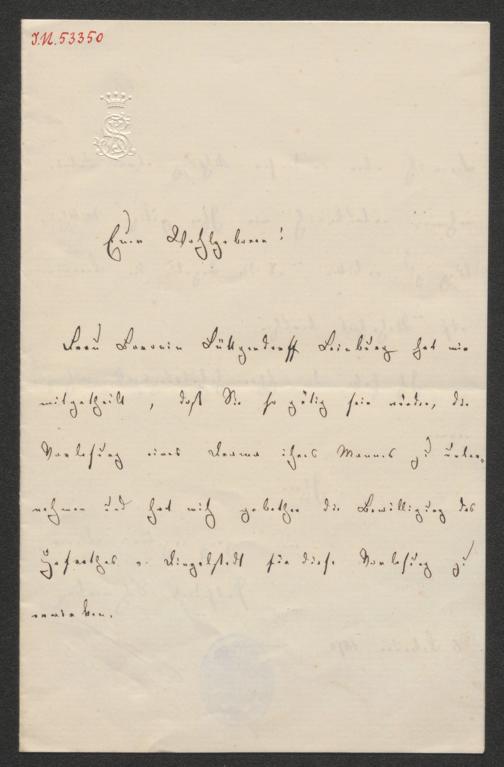 I.N. 53350
Euer Wohlgeboren!
Frau Baronin Püttgendorff Leinburg hat mir
mitgetheilt, daß Sie so gütig sein würden, die
Vorlesung eines Drama ihres Mannes zu unter-
nehmen und hat mich gebethen die Bewilligung des
Hofrathes v. Dingelstedt für diese Vorlesung zu
erwirken.